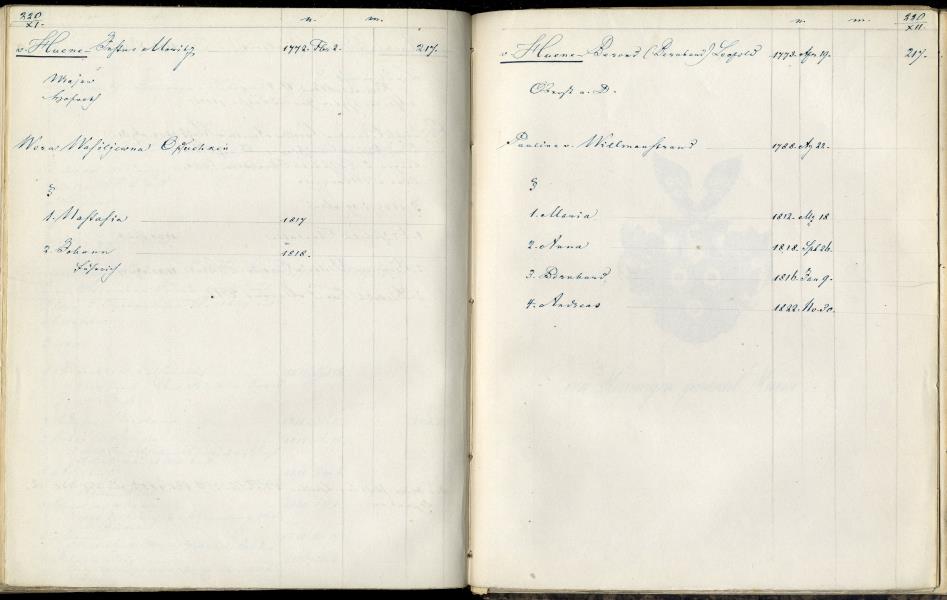 220
XI.
n. m.
v. Huene - Justus Moritz 1772. Fbr. 2. 217.
Major
Hofrath
Wera Wasiljewna
§
1. Nastasia 1817
2. Johann 1818.
Fähnrich
n. m. 220
XII.
v Huene - Berend (Bernhard) Leopold 1773. Apr. 217.
Obrist a. D.
Pauline v. Willmanstrand 1788. Ag 22.
§
1. Maria 1812. Mz 18
2. Anna 1818. Spt 26.
3. Bernhard 1816. Jan 9.
4. Andreas 1822. No. 30.